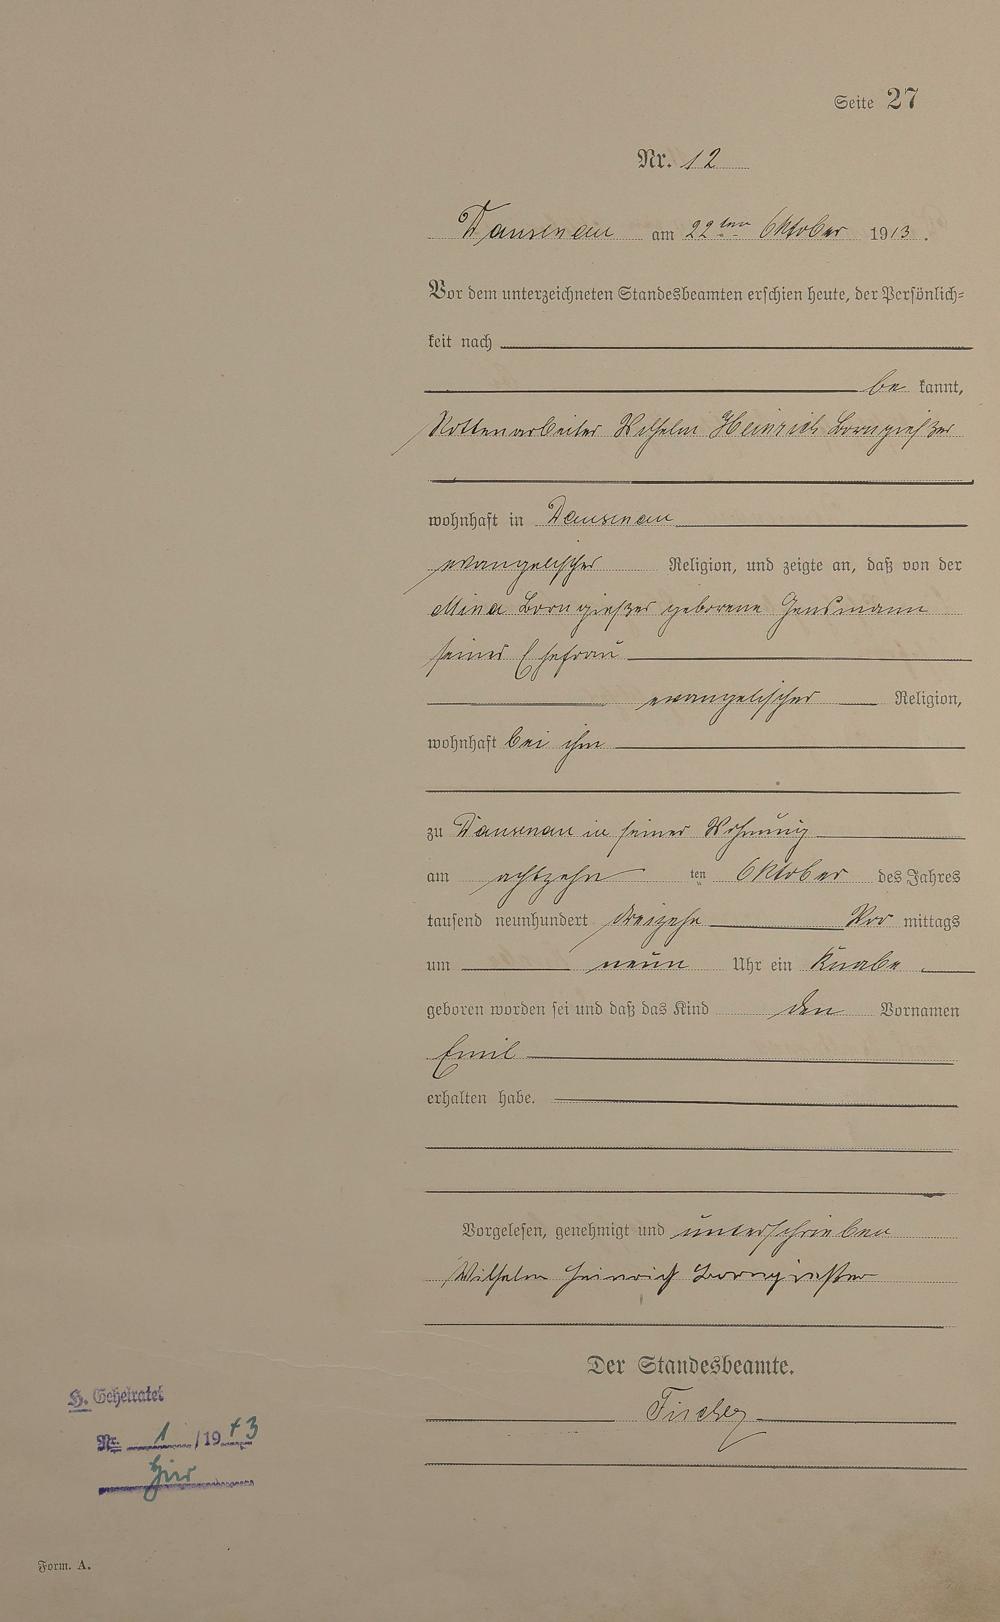 Seite 27
Nr. 12
Dausenau am 22ten Oktober 1913.
Vor dem unterzeichneten Standesbeamten erschien heute, der Persönlich-
keit nach
be kannt,
Rottenarbeiter Wilhelm Heinrich Borngießer
wohnhaft in Dausenau
evangelischer Religion, und zeigte an, daß von der
Mina Borngießer geborene Gensmann
seiner Ehefrau
evangelischer Religion,
wohnhaft bei ihm
zu Dausenau in seiner Wohnung
am achtzehn ten Oktober des Jahres
tausend neunhundert dreizehn Vor mittags
um neun Uhr ein Knabe
geboren worden sei und daß das Kind den Vornamen
Emil
erhalten habe.
Vorgelesen, genehmigt und unterschrieben
Wilhelm Heinrich Borngießer
Der Standesbeamte.
H. Geheiratet
Nr. 1 /1943
hier
Form. A.